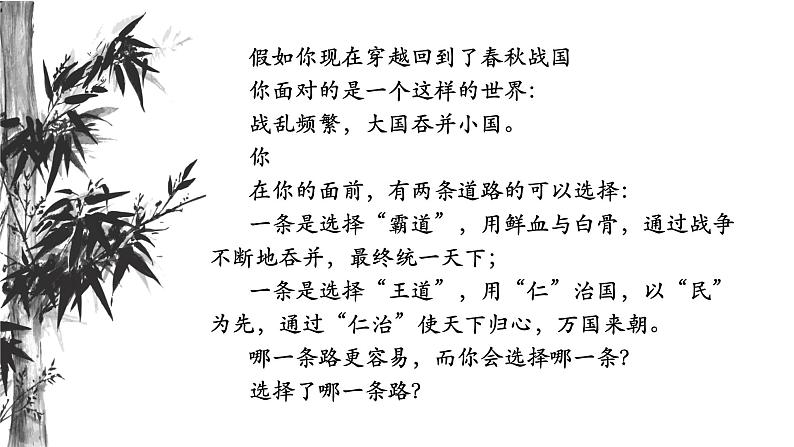 假如你现在穿越回到了春秋战国
你面对的是一个这样的世界：
战乱频繁，大国吞并小国。
你
在你的面前，有两条道路的可以选择：
一条是选择“霸道”，用鲜血与白骨，通过战争
不断地吞并，最终统一天下；
一条是选择“王道”，用“仁”治国，以“民”
为先，通过“仁治”使天下归心，万国来朝。
哪一条路更容易，而你会选择哪一条？
选择了哪一条路？